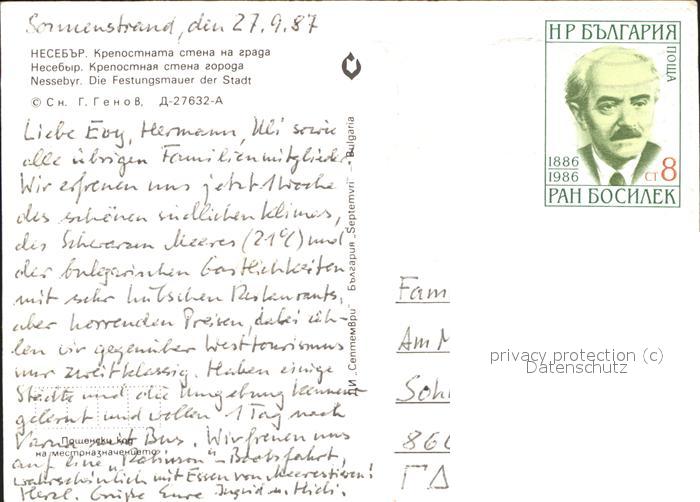 Sonnenstrand, den 27.9.87
НЕСЕБЪР. Крепостната стена на града
Несебыр. Крепостная стена города
Nessebyr. Die Festungsmauer der Stadt
© Сн. Г. Генов, Д-27632-А
Liebe Evy, Hermann, Uli sowie
alle übrigen Familienmitglieder.
Wir erfreuen uns jetzt 1 Woche
des schönen südlichen Klimas,
des Schwarzen Meeres (21°C) und
der bulgarischen Gastlichkeiten
mit sehr hübschen Restaurants,
aber horrenden Preisen, dabei zäh-
len wir gegenüber Westtourismus
nur zweitklassig. Haben einige
Städte und die Umgebung kennen-
gelernt und wollen 1 Tag nach
Varna mit Bus. Wir freuen uns
auf eine „Robinson"-Bootsfahrt,
wahrscheinlich mit Essen von Meerestieren!
Herzl. Grüße Eure Ingrid u. Michi.
Пощенски код
на местоназначението
ДИ „Септември" България „Septemvri" - Bulgaria
НР БЪЛГАРИЯ
ПОЩА
1886
1986
СТ 8
РАН БОСИЛЕК
Fam
Am M
Soh
860
privacy protection (c)
Datenschutz